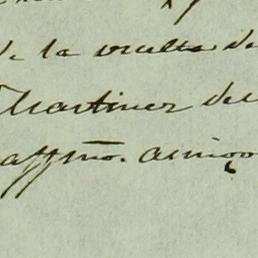 de la vuelta de
Martinez del
affmo. amigo